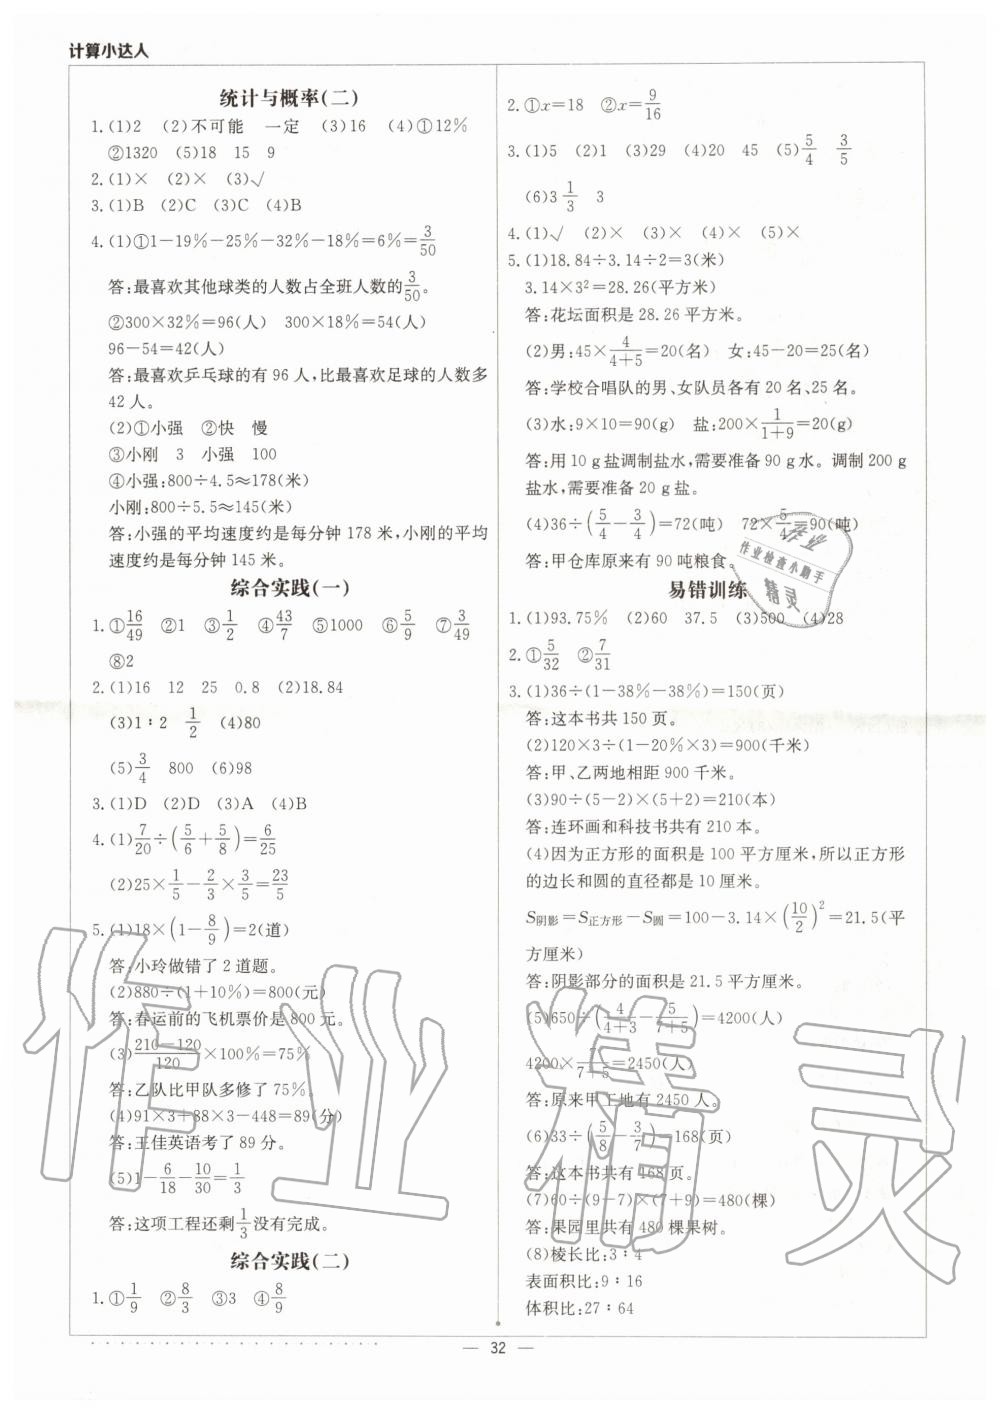 计算小达人
统计与概率(二)
1.(1)2 (2)不可能 一定 (3)16 (4)①12%
②1320 (5)18 15 9
2.(1)× (2)× (3)√
3.(1)B (2)C (3)C (4)B
4.(1)①1-19%-25%-32%-18%=6%=3/50
答:最喜欢其他球类的人数占全班人数的3/50。
②300×32%=96(人) 300×18%=54(人)
96-54=42(人)
答:最喜欢乒乓球的有 96 人,比最喜欢足球的人数多
42 人。
(2)①小强 ②快 慢
③小刚 3 小强 100
④小强:800÷4.5≈178(米)
小刚:800÷5.5≈145(米)
答:小强的平均速度约是每分钟 178 米,小刚的平均
速度约是每分钟 145 米。
综合实践(一)
1.①16/49 ②1 ③1/2 ④43/7 ⑤1000 ⑥5/9 ⑦3/49
⑧2
2.(1)16 12 25 0.8 (2)18.84
(3)1∶2 1/2 (4)80
(5)3/4 800 (6)98
3.(1)D (2)D (3)A (4)B
4.(1)7/20÷(5/6+5/8)=6/25
(2)25×1/5-2/3×3/5=23/5
5.(1)18×(1-8/9)=2(道)
答:小玲做错了 2 道题。
(2)880÷(1+10%)=800(元)
答:春运前的飞机票价是 800 元。
(3)(210-120)/120×100%=75%
答:乙队比甲队多修了 75%。
(4)91×3+88×3-448=89(分)
答:王佳英语考了 89 分。
(5)1-6/18-10/30=1/3
答:这项工程还剩1/3没有完成。
综合实践(二)
1.①1/9 ②8/3 ③3 ④8/9
2.①x=18 ②x=9/16
3.(1)5 (2)1 (3)29 (4)20 45 (5)5/4 3/5
(6)3 1/3 3
4.(1)√ (2)× (3)× (4)× (5)×
5.(1)18.84÷3.14÷2=3(米)
3.14×3²=28.26(平方米)
答:花坛面积是 28.26 平方米。
(2)男:45×4/(4+5)=20(名) 女:45-20=25(名)
答:学校合唱队的男、女队员各有 20 名、25 名。
(3)水:9×10=90(g) 盐:200×1/(1+9)=20(g)
答:用 10 g 盐调制盐水,需要准备 90 g 水。调制 200 g
盐水,需要准备 20 g 盐。
(4)36÷(5/4-3/4)=72(吨) 72×5/4=90(吨)
答:甲仓库原来有 90 吨粮食。
作业
作业检查小助手
精灵
易错训练
1.(1)93.75% (2)60 37.5 (3)500 (4)28
2.①5/32 ②7/31
3.(1)36÷(1-38%-38%)=150(页)
答:这本书共 150 页。
(2)120×3÷(1-20%×3)=900(千米)
答:甲、乙两地相距 900 千米。
(3)90÷(5-2)×(5+2)=210(本)
答:连环画和科技书共有 210 本。
(4)因为正方形的面积是 100 平方厘米,所以正方形
的边长和圆的直径都是 10 厘米。
S阴影=S正方形-S圆=100-3.14×(10/2)²=21.5(平
方厘米)
答:阴影部分的面积是 21.5 平方厘米。
(5)650÷(4/(4+3)-5/(7+5))=4200(人)
4200×7/(7+5)=2450(人)
答:原来甲工地有 2450 人。
(6)33÷(5/8-3/7)=168(页)
答:这本书共有 168 页。
(7)60÷(9-7)×(7+9)=480(棵)
答:果园里共有 480 棵果树。
(8)棱长比:3∶4
表面积比:9∶16
体积比:27∶64
作业精灵
— 32 —